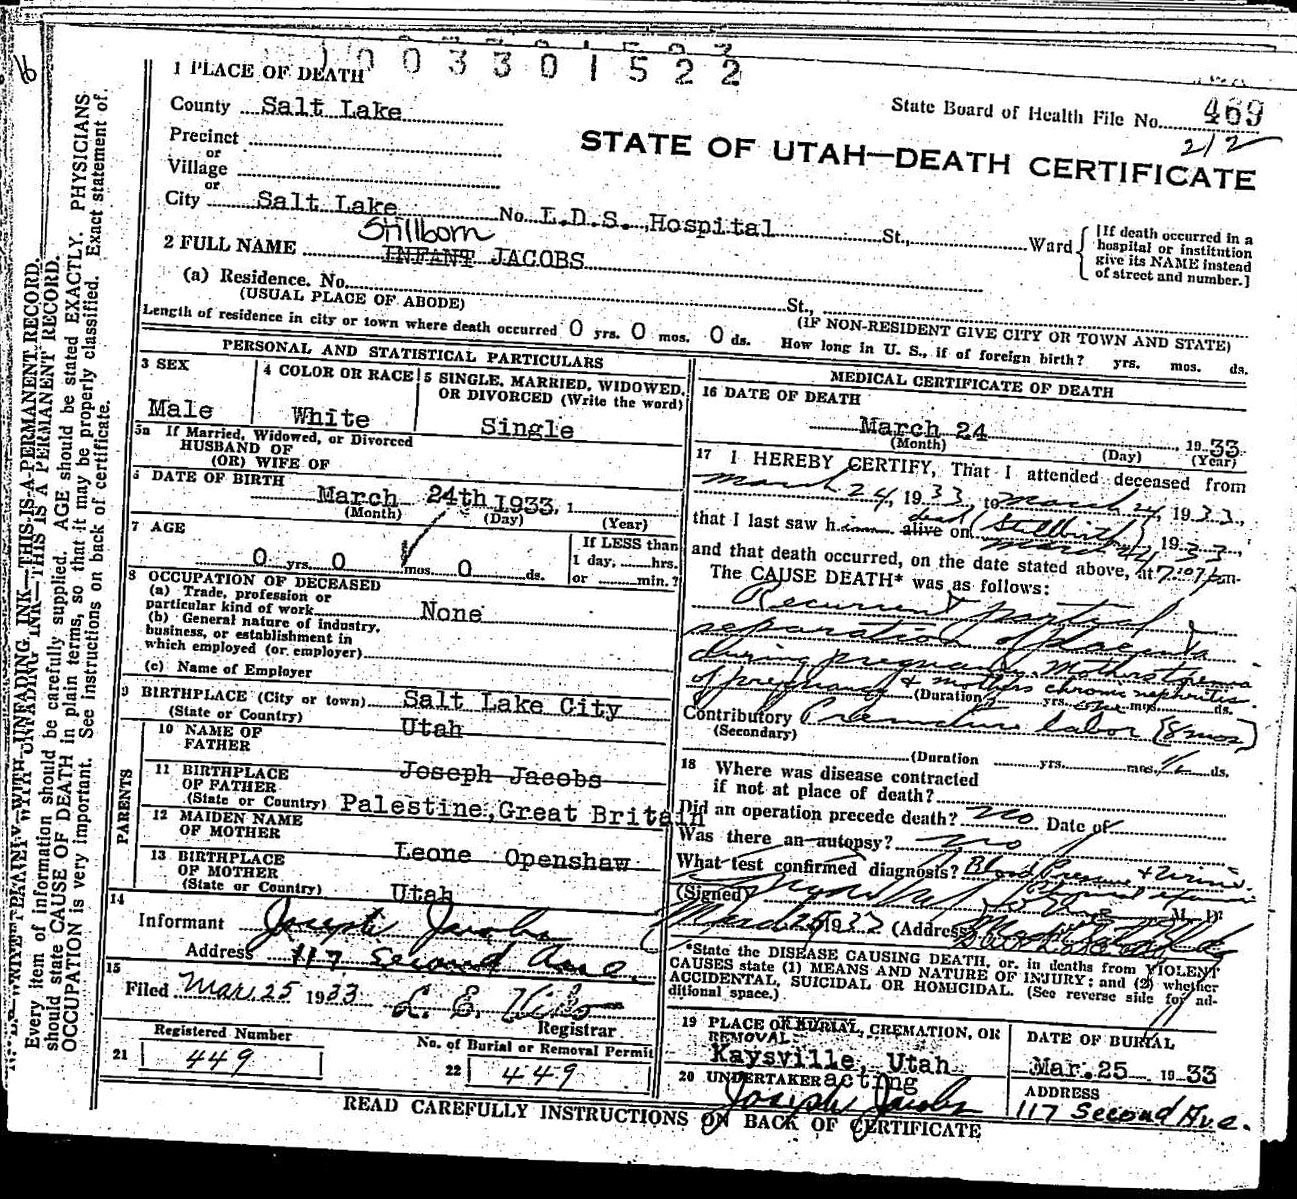 1 PLACE OF DEATH
1003301522
County Salt Lake
State Board of Health File No. 469
212
Precinct
or
Village
or
STATE OF UTAH—DEATH CERTIFICATE
City Salt Lake No. L.D.S., Hospital St., Ward
[If death occurred in a hospital or institution give its NAME instead of street and number.]
Stillborn
2 FULL NAME INFANT JACOBS
(a) Residence. No. St.,
(USUAL PLACE OF ABODE) (IF NON-RESIDENT GIVE CITY OR TOWN AND STATE)
Length of residence in city or town where death occurred 0 yrs. 0 mos. 0 ds. How long in U. S., if of foreign birth? yrs. mos. ds.
PERSONAL AND STATISTICAL PARTICULARS
3 SEX
Male
4 COLOR OR RACE
White
5 SINGLE, MARRIED, WIDOWED,
OR DIVORCED (Write the word)
Single
5a If Married, Widowed, or Divorced
HUSBAND OF
(OR) WIFE OF
6 DATE OF BIRTH
March 24th 1933, 1
(Month) (Day) (Year)
7 AGE
0 yrs. 0 mos. 0 ds.
If LESS than
1 day, hrs.
or min.?
8 OCCUPATION OF DECEASED
(a) Trade, profession or
particular kind of work None
(b) General nature of industry,
business, or establishment in
which employed (or employer)
(c) Name of Employer
9 BIRTHPLACE (City or town) Salt Lake City
(State or Country) Utah
PARENTS
10 NAME OF
FATHER Joseph Jacobs
11 BIRTHPLACE
OF FATHER
(State or Country) Palestine, Great Britain
12 MAIDEN NAME
OF MOTHER Leone Openshaw
13 BIRTHPLACE
OF MOTHER
(State or Country) Utah
14
Informant Joseph Jacobs
Address 117 Second Ave.
15
Filed Mar. 25 1933
Registrar
Registered Number
21 449
No. of Burial or Removal Permit
22 449
MEDICAL CERTIFICATE OF DEATH
16 DATE OF DEATH
March 24 1933
(Month) (Day) (Year)
17 I HEREBY CERTIFY, That I attended deceased from
March 24, 1933 to March 24, 1933,
that I last saw him alive dead on (Stillbirth) March 24, 1933,
and that death occurred, on the date stated above, at 7:07 pm.
The CAUSE DEATH* was as follows:
Recurrent partial
separation of placenta
during pregnancy
of pregnancy & mothers chronic nephritis.
(Duration yrs. one mos. ds.
Contributory Premature labor (8 mos)
(Secondary)
(Duration yrs. mos. ds.
18 Where was disease contracted
if not at place of death?
Did an operation precede death? No Date of
Was there an autopsy? no
What test confirmed diagnosis? Blood Pressure & Urine.
(Signed) M. D.
March 25 1933 (Address)
*State the DISEASE CAUSING DEATH, or, in deaths from VIOLENT
CAUSES state (1) MEANS AND NATURE OF INJURY; and (2) whether
ACCIDENTAL, SUICIDAL OR HOMICIDAL. (See reverse side for ad-
ditional space.)
19 PLACE OF BURIAL, CREMATION, OR
REMOVAL
Kaysville, Utah
DATE OF BURIAL
Mar. 25 1933
20 UNDERTAKER acting
Joseph Jacobs
ADDRESS
117 Second Ave.
READ CAREFULLY INSTRUCTIONS ON BACK OF CERTIFICATE
WITH UNFADING INK—THIS IS A PERMANENT RECORD.
Every item of information should be carefully supplied. AGE should be stated EXACTLY. PHYSICIANS
should state CAUSE OF DEATH in plain terms, so that it may be properly classified. Exact statement of
OCCUPATION is very important. See instructions on back of certificate.